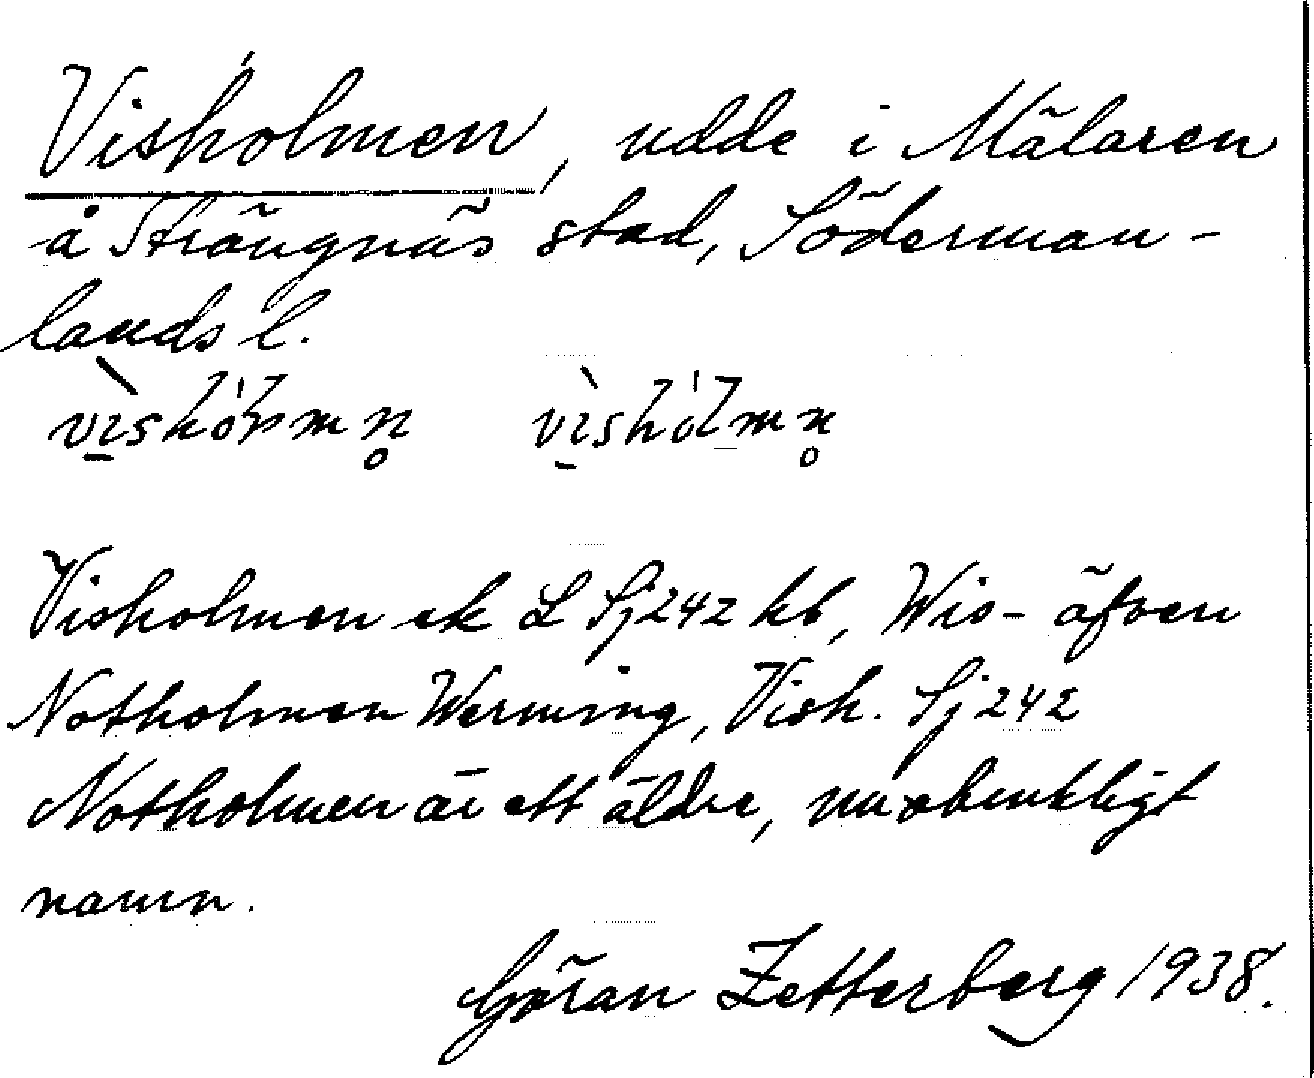 Visholmen, udde i Mälaren
å Strängnäs stad, Söderman-
lands l.
vìshólmn̥ vìshólmn̥
Visholmen ek L Sj 242 kb, Wis- äfven
Notholmen Werming, Vish. Sj 242
Notholmen är ett äldre, nu obrukligt
namn.
Göran Zetterberg 1938.